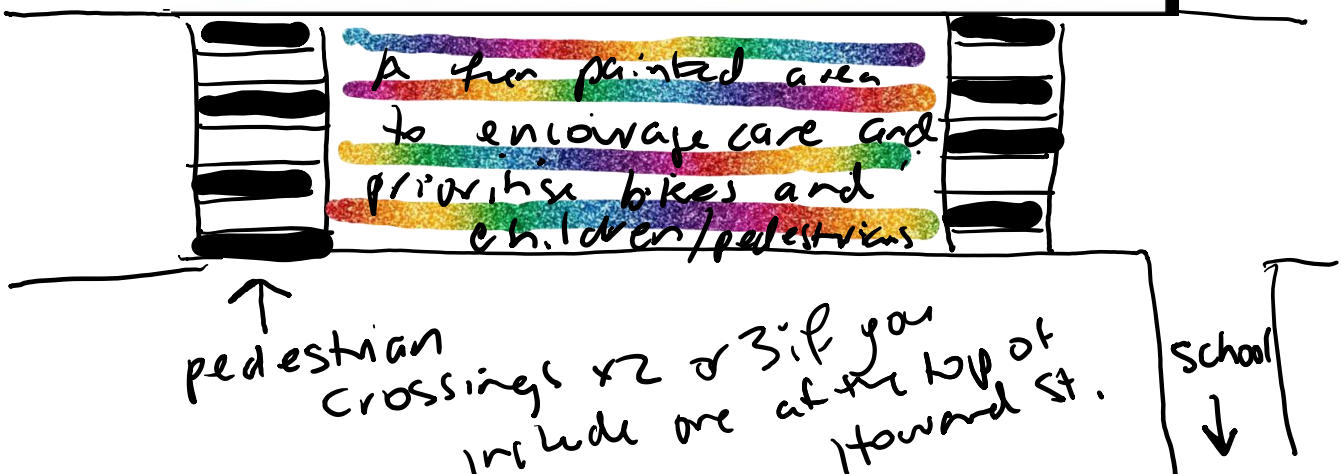 A fun painted area
to encourage care and
prioritise bikes and
children/pedestrians
pedestrian
crossings x2 or 3 if you
include one at the top of
Howard St.
school